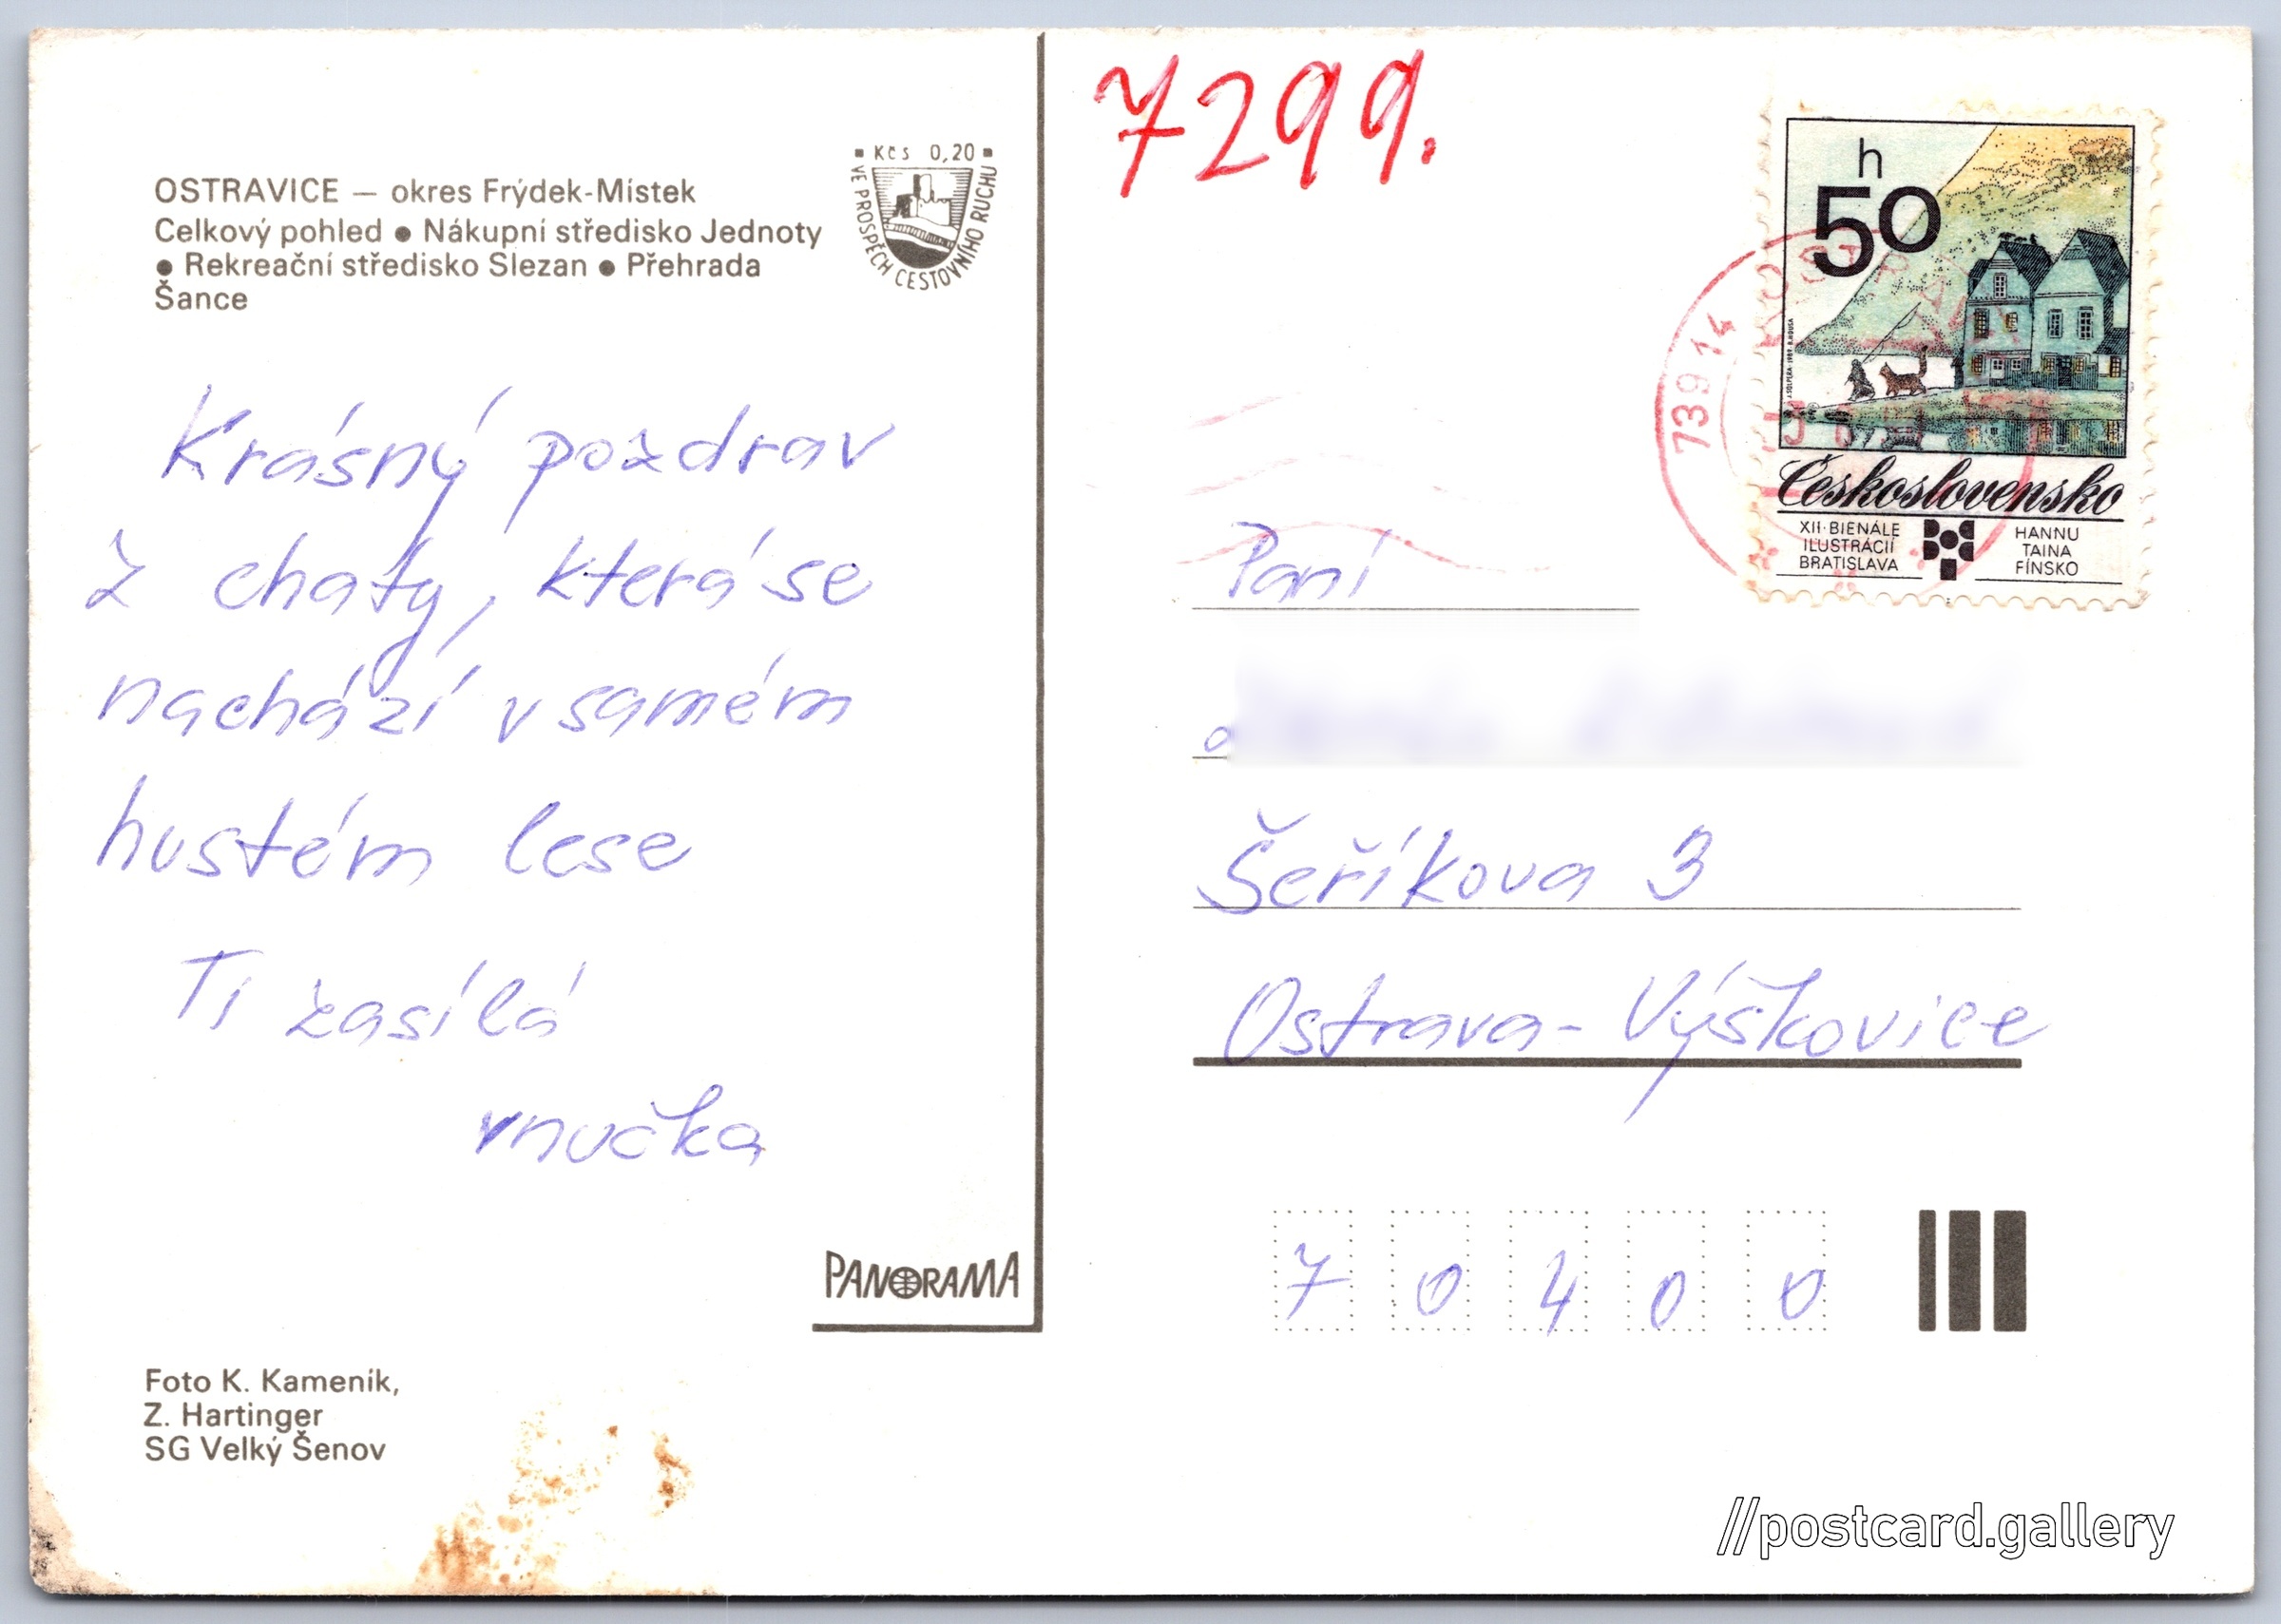 OSTRAVICE — okres Frýdek-Místek
Celkový pohled ● Nákupní středisko Jednoty
● Rekreační středisko Slezan ● Přehrada
Šance
Kčs 0,20
VE PROSPĚCH CESTOVNÍHO RUCHU
Krásný pozdrav
z chaty, která se
nachází v samém
hustém lese
Ti zasílá
vnučka
PANORAMA
Foto K. Kameník,
Z. Hartinger
SG Velký Šenov
7299.
h
50
J. SOLPERA · 1989 · B. HOUSA
Československo
XII·BIENÁLE
ILUSTRÁCIÍ
BRATISLAVA
HANNU
TAINA
FÍNSKO
739 14
Paní
Šeříkova 3
Ostrava-Výškovice
7 0 4 0 0
//postcard.gallery